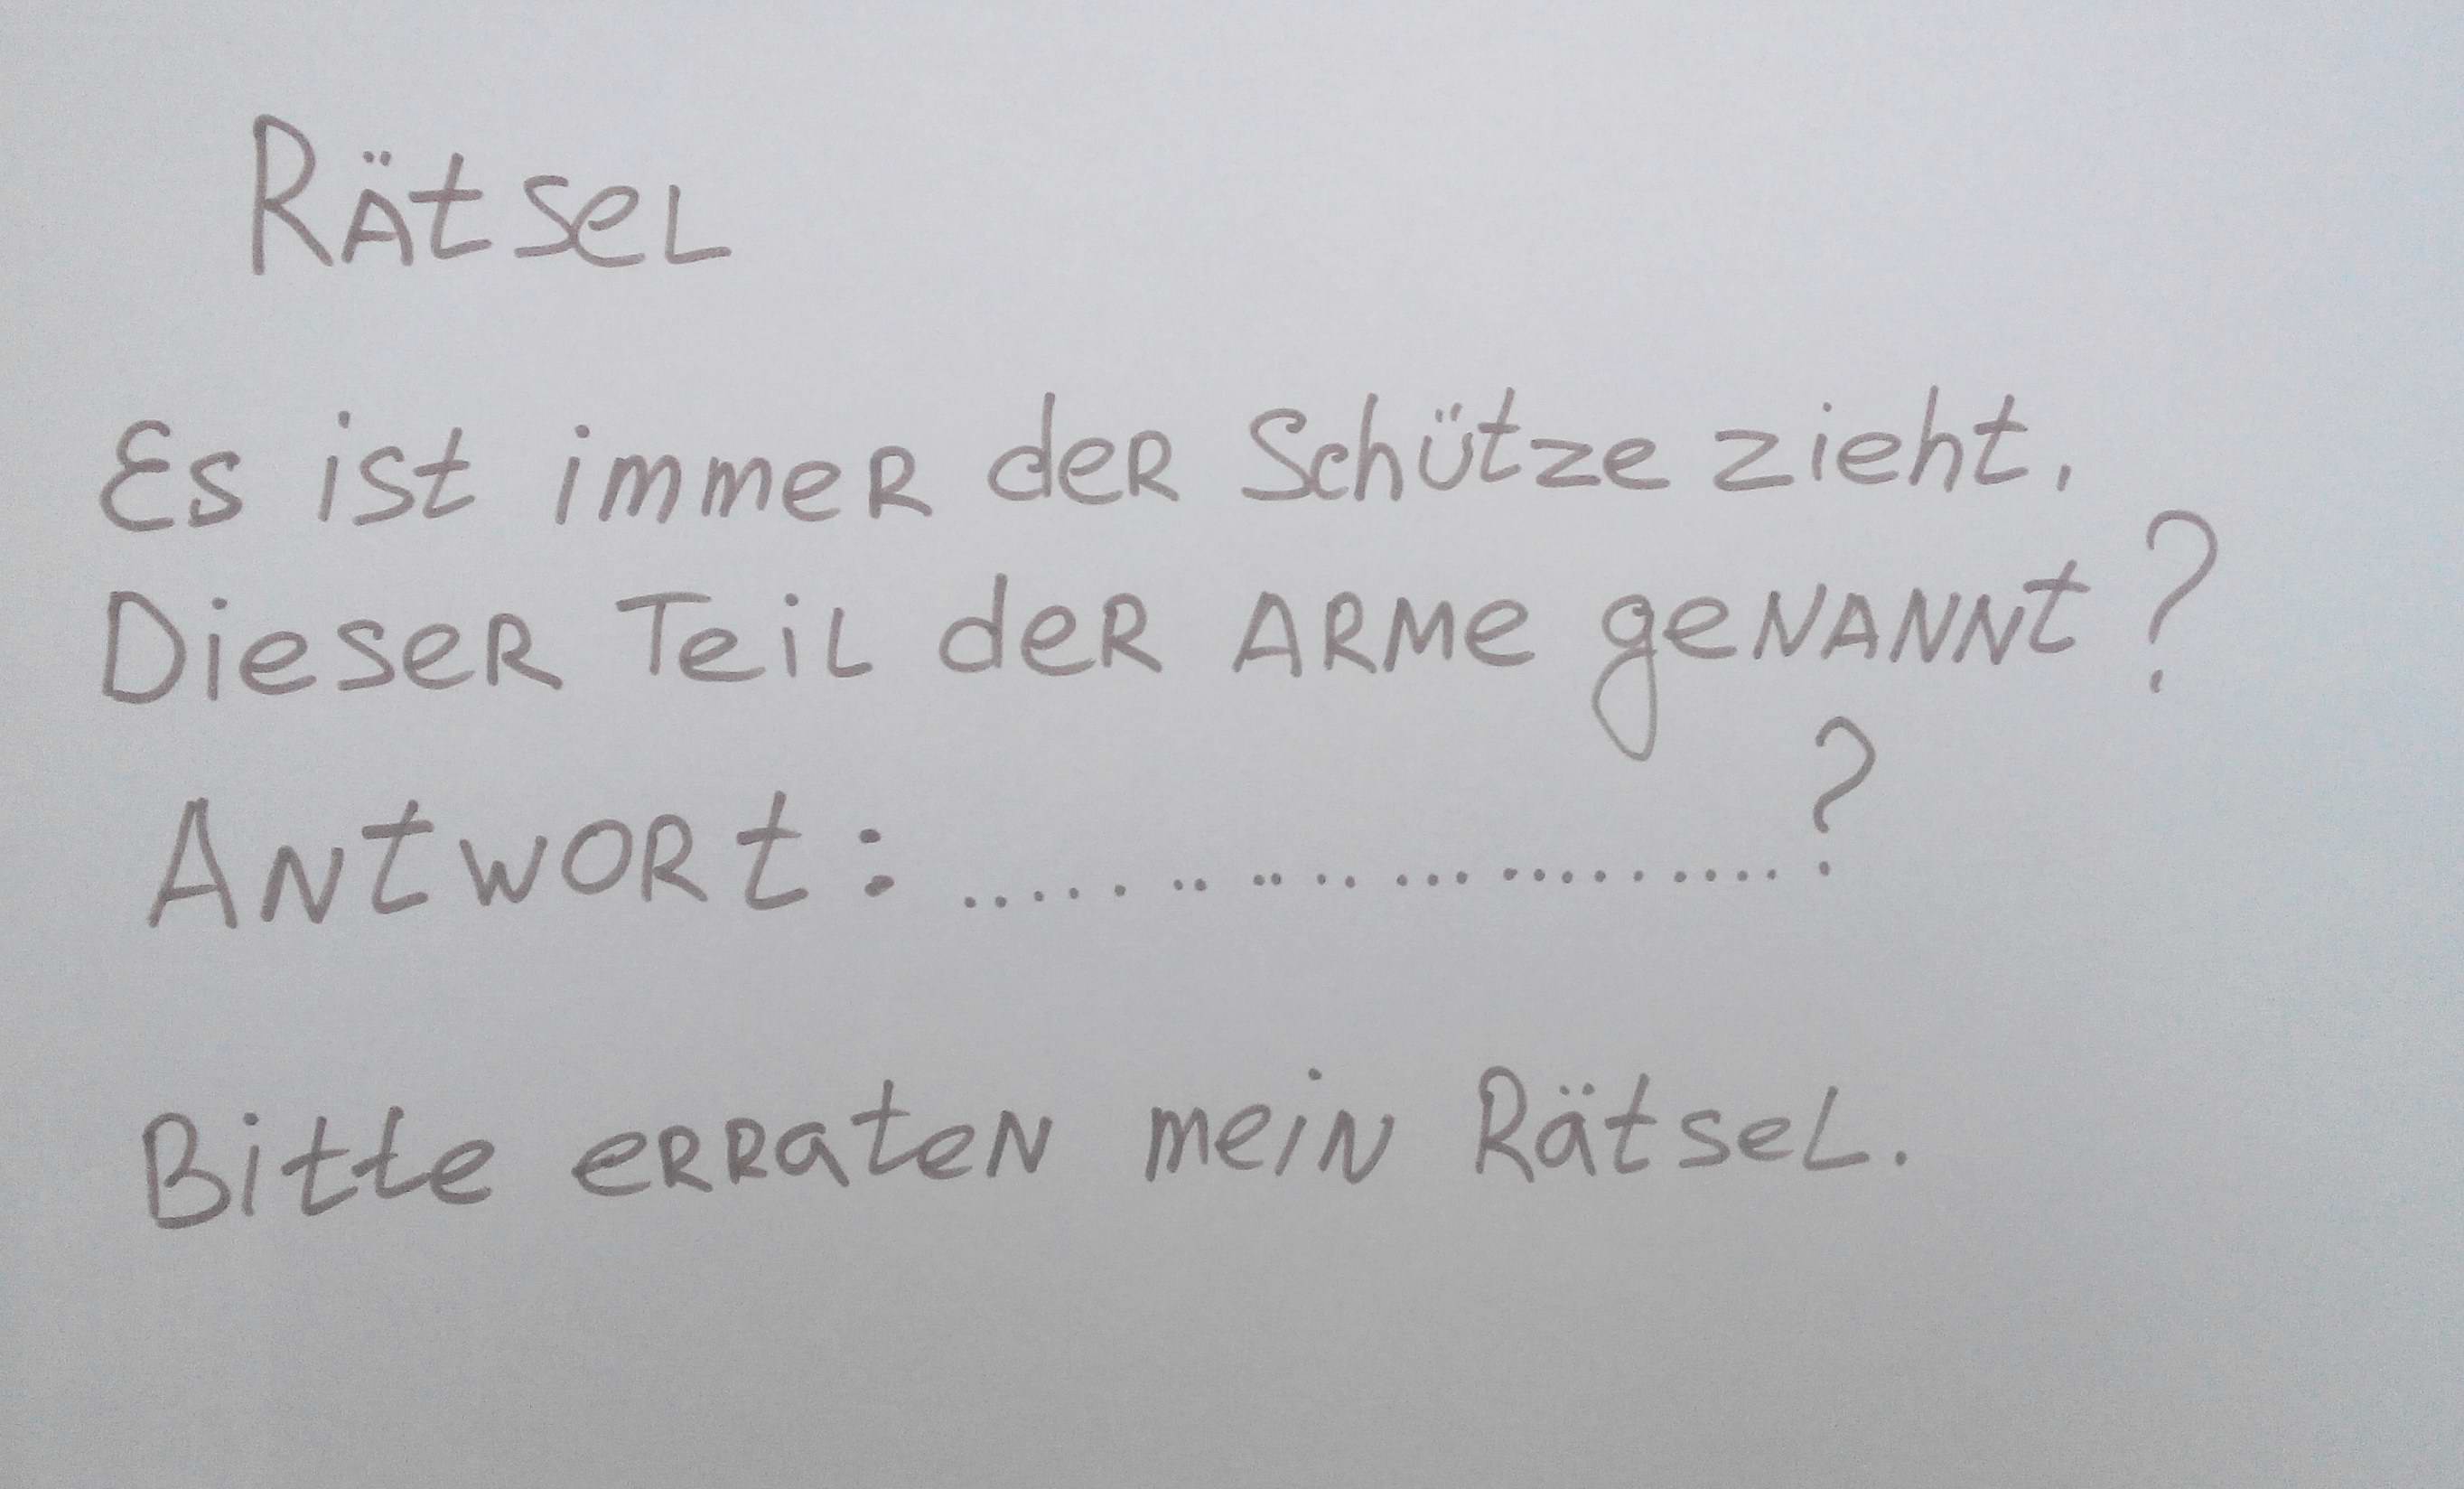 Rätsel
Es ist immer der Schütze zieht.
Dieser Teil der Arme genannt?
Antwort: ..............................?
Bitte erraten mein Rätsel.